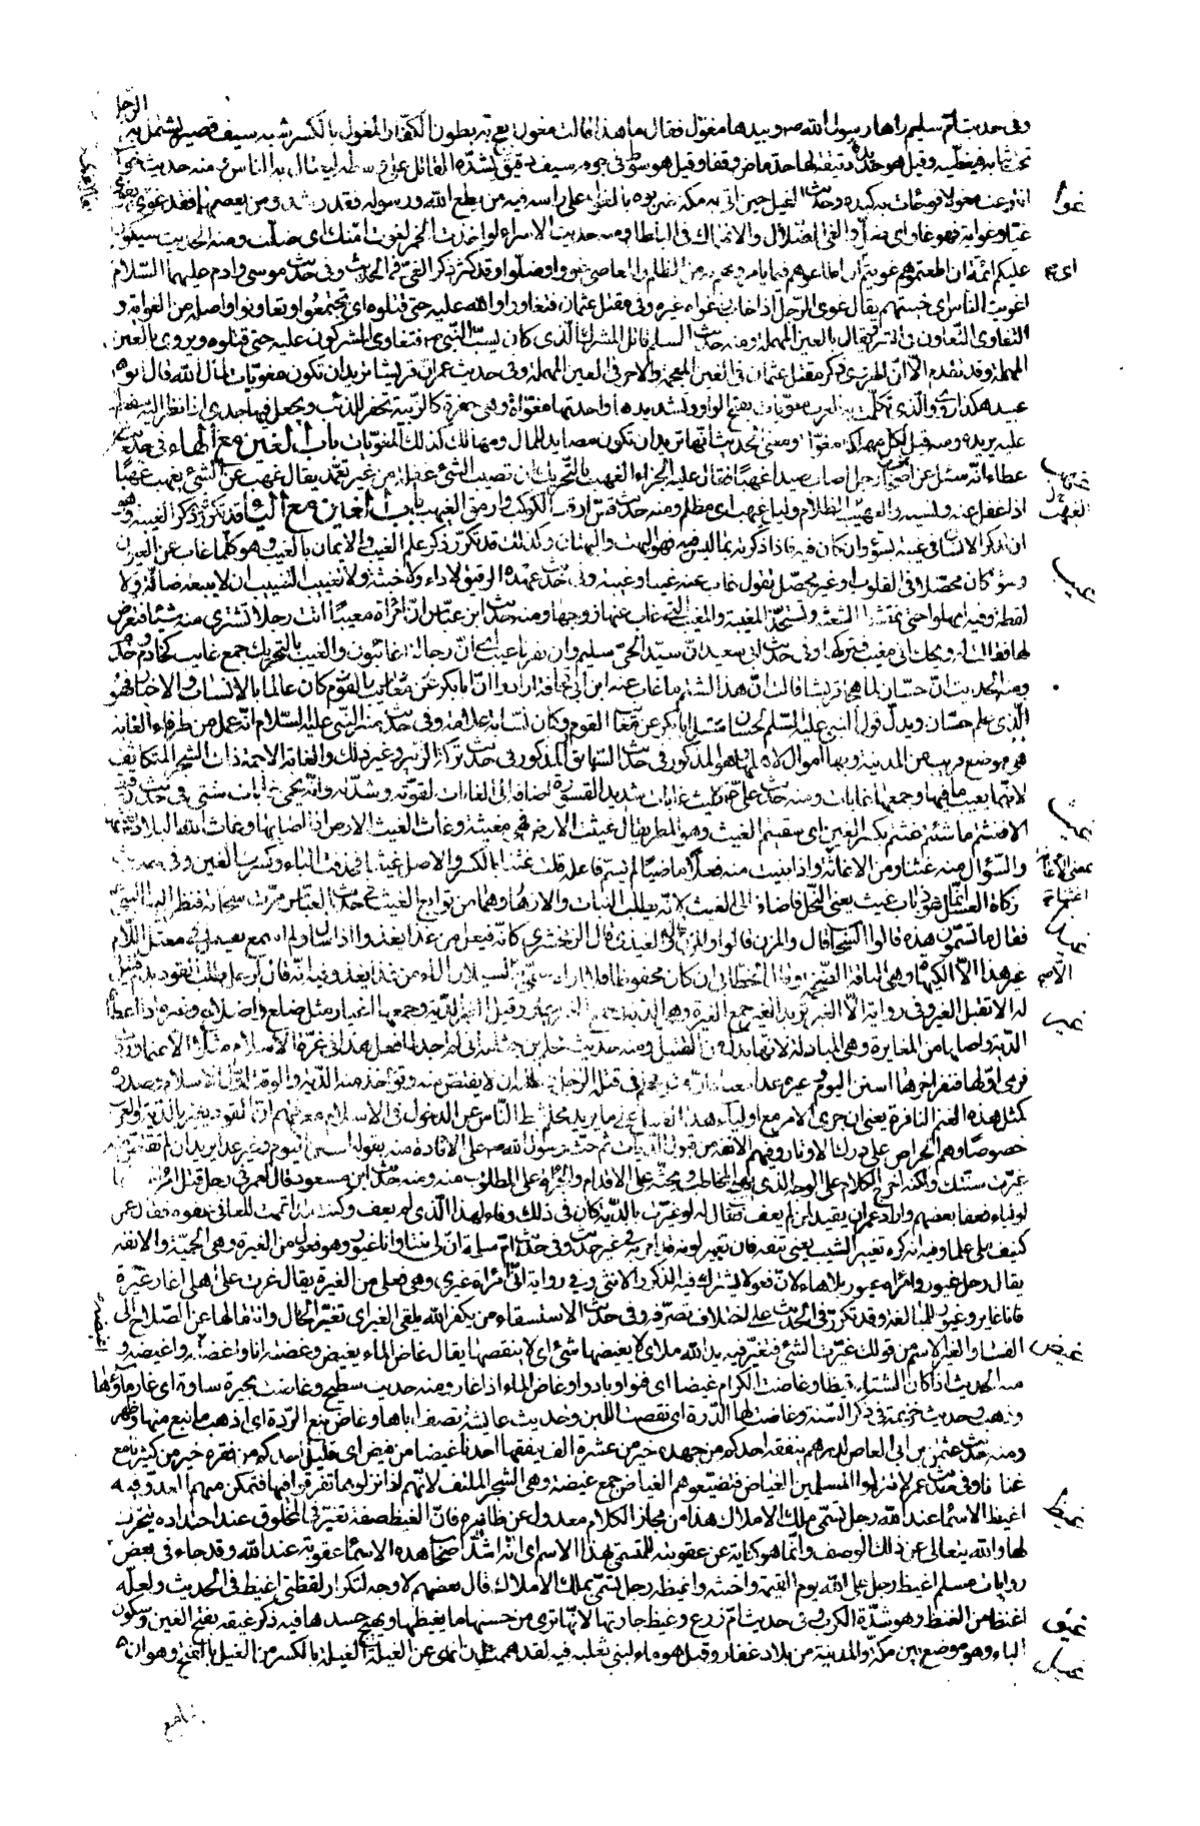 وفى حديث ام سليم راها رسول الله ص وبيدها مغول فقال ما هذا قالت مغول ابعج به بطون الكفار المغول بالكسر شبه سيف قصير يشتمل به
الرجل
تحت ثيابه فيغطيه وقيل هو حديدة دقيقة لها حد ماض وقفا وقيل هو سوط فى جوفه سيف دقيق يشده الفاتك على وسطه ليغتال به الناس ومنه حديث خوات
غوا
انتزعت مغولا فوجأت به كبده وحديث الفيل حين اتى به مكة ضربوه بالمغول على راسه فيه من يطع الله ورسوله فقد رشد ومن يعصهما فقد غوى يقال غوى
غيا وغواية فهو غاو اى ضل والغى الضلال والانهماك فى الباطل ومنه حديث الاسراء لو اخذت الخمر لغوت امتك اى ضلت ومنه الحديث سيكون
عليكم ائمة ان اطعتموهم غويتم اى ان اطاعوهم فيما يامرونهم به من الظلم والمعاصى غووا وضلوا وقد كثر ذكر الغى فى الحديث وفى حديث موسى وادم عليهما السلام
اغويت الناس اى خيبتهم يقال غوى الرجل اذا خاب واغواه غيره وفى مقتل عثمان فتغاووا والله عليه حتى قتلوه اى تجمعوا وتعاونوا واصله من الغواية و
التغاوى التعاون فى الشر ويقال بالعين المهملة ومنه حديث المسلم قاتل المشرك الذى كان يسب النبى ص فتغاوى المشركون عليه حتى قتلوه ويروى بالعين
المهملة وقد تقدم الا ان الهروى ذكر مقتل عثمان فى الغين المعجمة والاخر فى العين المهملة وفى حديث عمر ان قريشا تريد ان تكون مغويات لمال الله قال ابو
عبيد هكذا روى والذى تكلمت به العرب مغويات بفتح الواو وتشديدها واحدتها مغواة وهى حفرة كالزبية تحفر للذئب ويجعل فيها جدى اذا نظر اليه سقط
عليه يريده ومنه قيل لكل مهلكة مغواة ومعنى الحديث انها تريد ان تكون مصايد للمال ومهالك كتلك المغويات باب الغين مع الهاء فى حديث
غهب
عطاء انه سئل عن رجل اصاب صيدا غهبا فقال عليه الجزاء الغهب بالتحريك ان تصيب الشئ غفلة من غير تعمد يقال غهب عن الشئ يغهب غهبا
اذا غفل عنه ونسيه والغيهب الظلام وليل غيهب اى مظلم ومنه حديث قس ارقب الكوكب وارمق الغيهب باب الغين مع الياء قد تكرر فيه ذكر الغيبة وهو
ان يذكر الانسان فى غيبته بسوء وان كان فيه فاذا ذكرته بما ليس فيه فهو البهت والبهتان وكذلك قد تكرر ذكر علم الغيب والايمان بالغيب وهو كلما غاب عن العيون
غيب
وسواء كان محصلا فى القلوب او غير محصل تقول غاب عنه غيبا وغيبة وفى حديث عهدة الرقيق لا داء ولا خبثة ولا تغييب التغييب ان لا يبيعه ضالة ولا
لقطة وفيه امهلوا حتى تمتشط الشعثة وتستحد المغيبة والمغيب التى غاب عنها زوجها ومنه حديث ابن عباس ان امراة مغيبا اتت رجلا تشترى منه شيئا فتعرض
لها فقالت له ويحك انى مغيب فتركها وفى حديث ابى سعيد ان سيد الحى سليم وان نفرنا غيب اى ان رجالنا غائبون والغيب بالتحريك جمع غايب كخادم وخدم
ومنه الحديث ان حسان لما هجا قريشا قالت ان هذا الشتم ما غاب عنه ابن ابى قحافة ارادوا ان ابا بكر عن مغايب القوم كان عالما بالانساب والاخبار فهو
الذى علم حسان ويدل قول النبى عليه السلام لحسان سل ابا بكر عن معايب القوم وكان نسابة علامة وفى حديث منبر النبى عليه السلام انه عمل من طرفاء الغابة
هو موضع قريب من المدينة وبها اموال لاهلها وهو المذكور فى حديث السباق والمذكور فى حديث تركة الزبير وغير ذلك والغابة الاجمة ذات الشجر المتكاثف
لانها يغيب ما فيها وجمعها غابات ومنه حديث على كليث غابات شديد القسورة اضافه الى الغابات لقوته وشدته وانه يحمى غابات شتى فى حديث رقيقة
غيث
الا فغثتم ما شئتم غثتم بكسر الغين اى سقيتم الغيث وهو المطر يقال غيثت الارض فهى مغيثة وغاث الغيث الارض اذا اصابها وغاث الله البلاد يغيثها
والسؤال منه غثنا ومن الاغاثة بمعنى الاعانة اغثنا واذا بنيت منه فعلا ماضيا لم يسم فاعله قلت غثنا بالكسر والاصل غيثنا فحذفت الياء وكسرت الغين وفى حديث
زكاة العسل انما هو ذباب غيث يعنى النحل فاضافه الى الغيث لانه يطلب النبات والازهار وهما من توابع الغيث فى حديث العباس مرت سحابة فنظر اليها النبى
فقال ما تسمون هذه قالوا السحاب قال والمزن قالوا والمزن قال والغيذى قال الزمخشرى كانه فيعل من غذا يغذو اذا سال ولم اسمع بفيعل فى معتل اللام
غير هذا الا الكيهاة وهى الناقة الضخمة وقال الخطابى ان كان محفوظا فلا اراه سمى به الا لسيلان الماء من غذا يغذو وفيه انه قال لرجل طلب القود بدم قتيل
غير
له الا تقبل الغير وفى رواية الا الغير تريد الغير جمع الغيرة وهى الدية
الدية واصلها من المغايرة وهى المبادلة لانها بدل من القتل ومنه حديث محلم بن جثامة انى لم اجد لما فعل هذا فى غرة الاسلام مثلا الا غنما وردت
فرمى اولها فنفر اخرها اسنن اليوم وغير غدا معناه ان مثل محلم فى قتله الرجل وطلبه ان لا يقتص منه وتؤخذ منه الدية والوقت اول الاسلام وصدره
كمثل هذه الغنم النافرة يعنى ان جرى الامر مع اولياء هذا القتيل على ما يريد محلم ثبط الناس عن الدخول فى الاسلام معرفتهم ان القود يغير بالدية والعرب
خصوصا وهم الحراص على درك الاوتار وفيهم الانفة من قبول الديات ثم حث رسول الله ص على الاقادة منه بقوله اسنن اليوم وغير غدا يريد ان لم تقتص منه
غيرت سنتك ولكنه اخرج الكلام على الوجه الذى يهيج المخاطب ويحثه على الاقدام والجرأة على المطلوب منه ومنه حديث ابن مسعود قال لعمر فى رجل قتل امراة
لها اولياء فعفا بعضهم واراد عمر ان يقيد لمن لم يعف فقال له لو غيرت بالدية كان فى ذلك وفاء لهذا الذى لم يعف وكنت قد اتممت للعافى عفوه فقال عمر
كنيف ملئ علما وفيه انه كره تغيير الشيب يعنى نتفه فان تغيير لونه قد امر به فى غير حديث وفى حديث ام سلمة ان لى بنتا وانا غيور وهو فعول من الغيرة وهى الحمية والانفة
يقال رجل غيور وامراة غيور بلا هاء لان فعولا يشترك فيه الذكر والانثى وفى رواية انى امراة غيرى وهى فعلى من الغيرة يقال غرت على اهلى اغار غيرة
فانا غاير وغيور للمبالغة وقد تكرر فى الحديث على اختلاف تصرفه وفى حديث الاستسقاء من يكفر الله يلقى الغير اى تغير الحال وانتقالها عن الصلاح الى
غيض
الفساد والغير الاسم من قولك غيرت الشئ فتغير فيه يد الله ملاى لا يغيضها شئ اى لا ينقصها يقال غاض الماء يغيض وغضته انا واغضته واغيضه و
منه الحديث اذا كان الشتاء قيظا وغاضت الكرام غيضا اى فنوا وبادوا وغاض الماء اذا غار ومنه حديث سطيح وغاضت بحيرة ساوة اى غار ماؤها
وذهب وحديث خزيمة فى ذكر السنة وغاضت لها الدرة اى نقصت اللبن وحديث عايشة تصف اباها وغاض نبع الردة اى اذهب ما نبع منها وظهر
ومنه حديث عثمان بن ابى العاص لدرهم ينفقه احدكم من جهده خير من عشرة الاف ينفقها احدنا غيضا من فيض اى قليل احدكم من فقره خير من كثيرنا مع
غنانا وفى حديث عمر لا تنزلوا المسلمين الغياض فتضيعوهم الغياض جمع غيضة وهى الشجر الملتف لانهم اذا نزلوها تفرقوا فيها فتمكن منهم العدو فيه
غيظ
اغيظ الاسماء عند الله رجل تسمى ملك الاملاك هذا من مجاز الكلام معدول عن ظاهره فان الغيظ صفة تغير فى المخلوق عند احتداده يتحرك
لها والله يتعالى عن ذلك الوصف وانما هو كناية عن عقوبته للمتسمى بهذا الاسم اى انه اشد اصحاب هذه الاسماء عقوبة عند الله وقد جاء فى بعض
روايات مسلم اغيظ رجل على الله يوم القيمة واخبثه واغيظه رجل تسمى بملك الاملاك قال بعضهم لا وجه لتكرار لفظتى اغيظ فى الحديث ولعله
غيق
اغنظ من الغنظ وهو شدة الكرب فى حديث ام زرع وغيظ جارتها لانها ترى من حسنها ما يغيظها ويهيج حسدها فيه ذكر غيقة بفتح الغين وسكون
غيل
الياء وهو موضع بين مكة والمدينة من بلاد غفار وقيل هو ماء لبنى ثعلبة فيه لقد هممت ان انهى عن الغيلة الغيلة بالكسر من الغيل بالفتح وهو ان